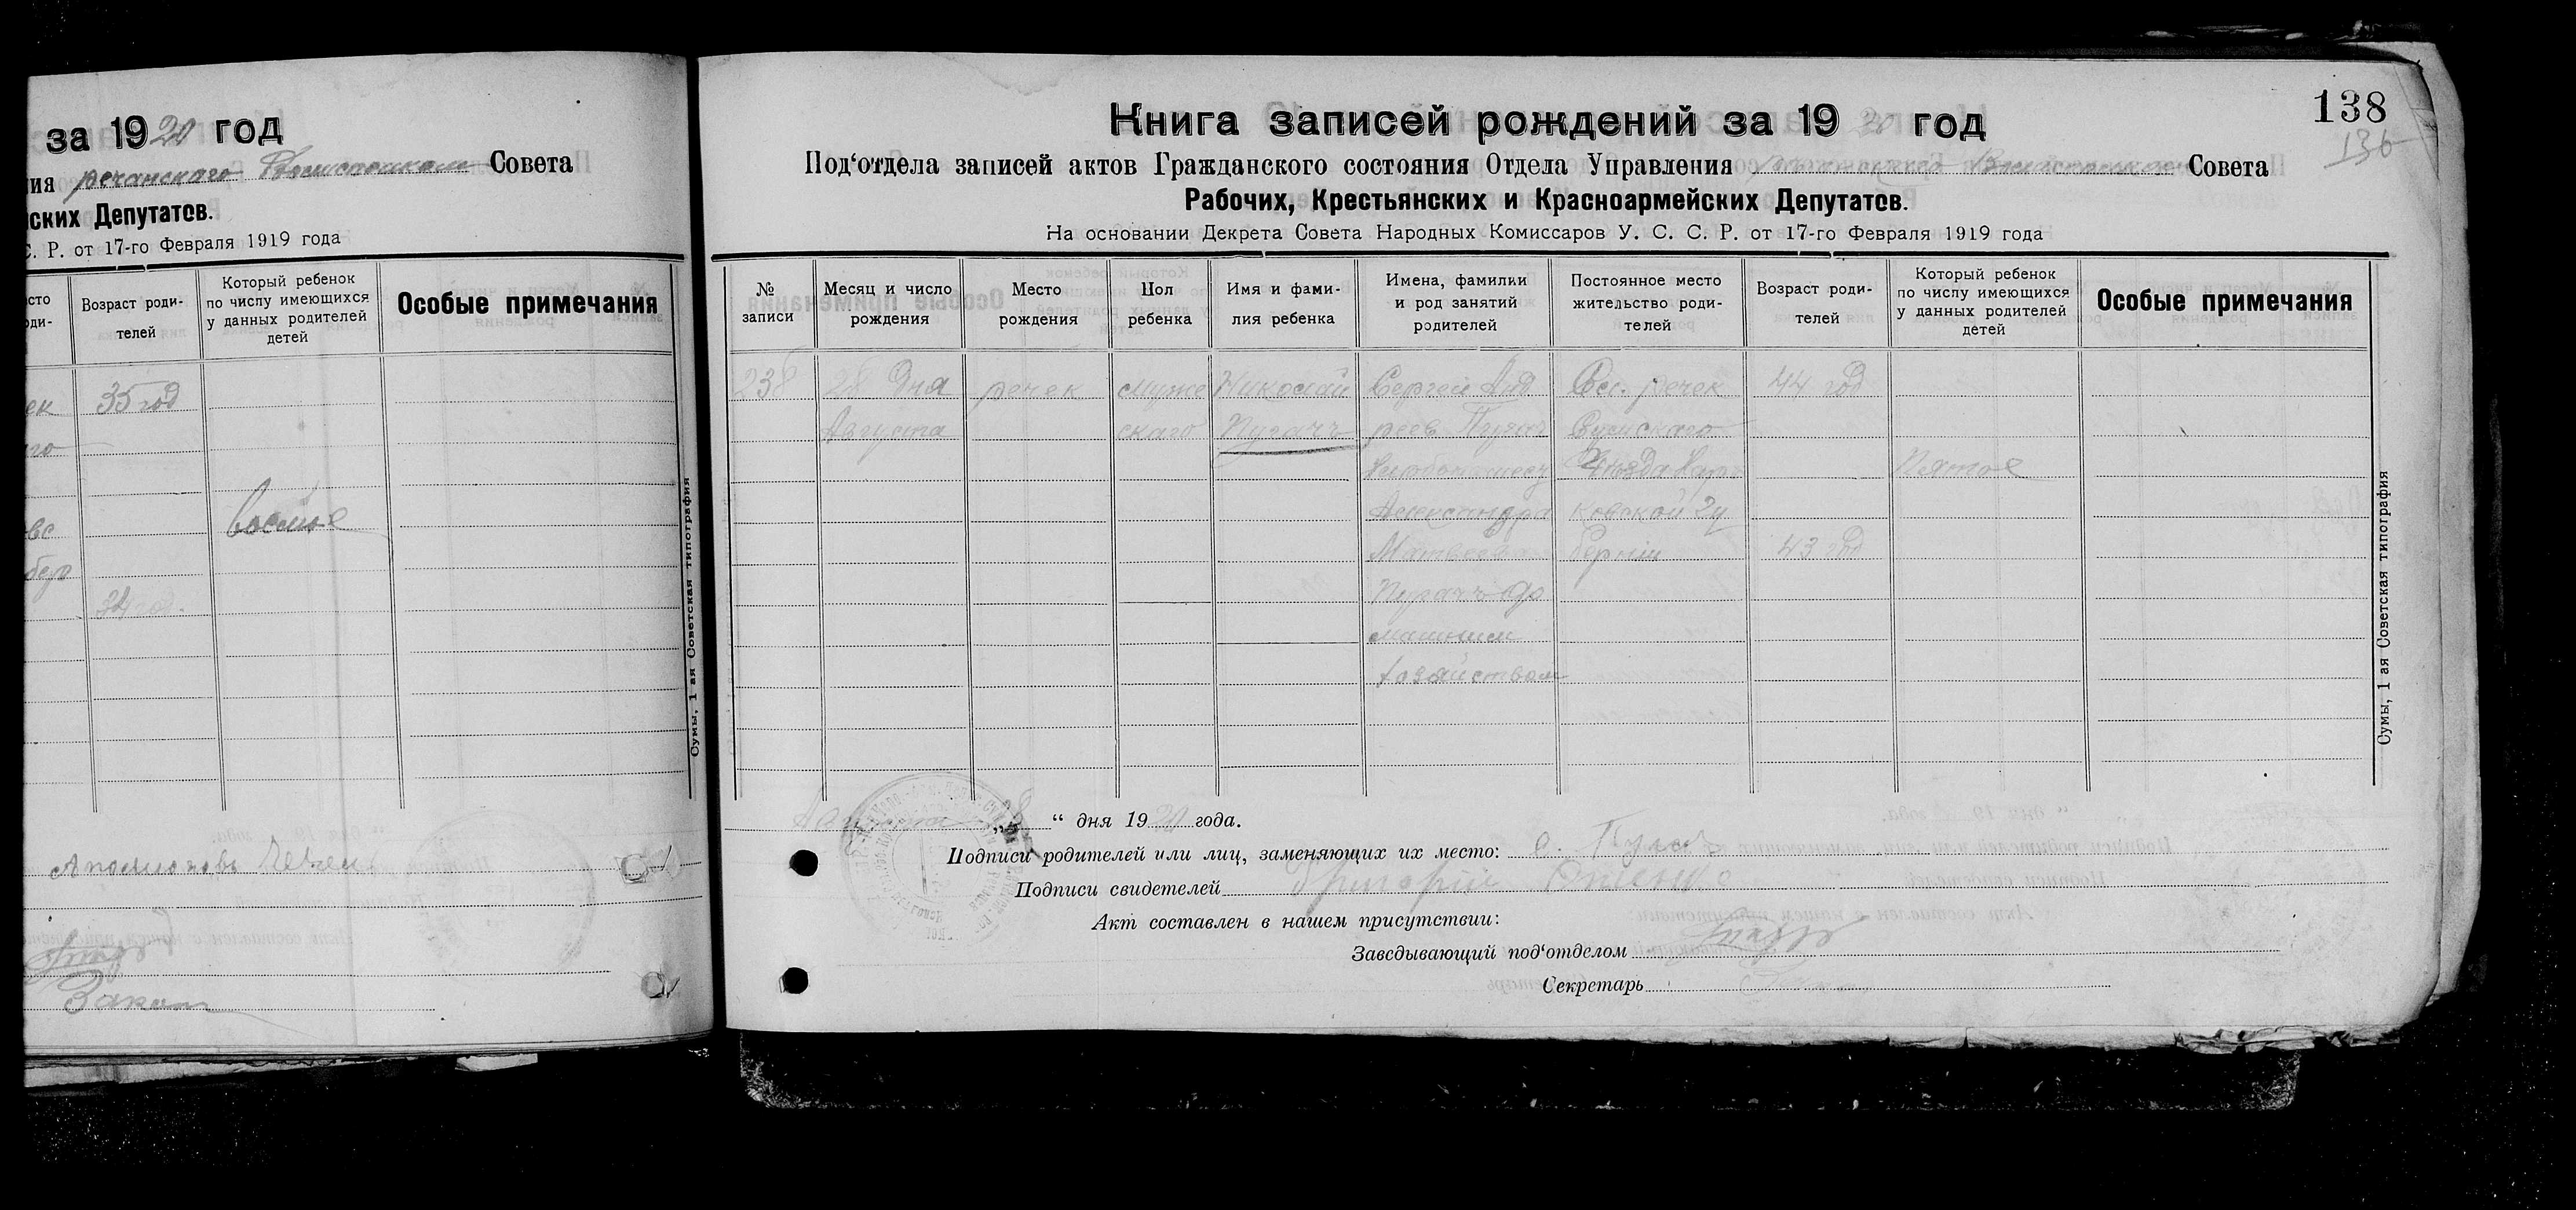 за 1920 год
ия речанского Волисполкома Совета
ских Депутатов.
С. Р. от 17-го Февраля 1919 года
сто
оди-
Возраст роди-
телей
Который ребенок
по числу имеющихся
у данных родителей
детей
Особые примечания
ек 35 год
го
восмое
вс
бер
34 год.
Сумы, 1 ая Советская типография
138
136
Книга записей рождений за 1920 год
Под‘отдела записей актов Гражданского состояния Отдела Управления Совета
Рабочих, Крестьянских и Красноармейских Депутатов.
На основании Декрета Совета Народных Комиссаров У. С. С. Р. от 17-го Февраля 1919 года
№
записи
Месяц и число
рождения
Место
рождения
Пол
ребенка
Имя и фами-
лия ребенка
Имена, фамилии
и род занятий
родителей
Постоянное место
жительство роди-
телей
Возраст роди-
телей
Который ребенок
по числу имеющихся
у данных родителей
детей
Особые примечания
238 28 Дня речек Муже Николай Сергей Анд Сел. речек 44 год
Августа скаго Пугачъ реев Пугач Сумскаго
уезда Харь Пятое
Александра ковской гу
Матвеева берніи 43 год
Пугачъ
хозяйством
Сумы, 1 ая Советская типография
Августа „ “ дня 1920 года.
Подписи родителей или лиц, заменяющих их место: С. Пугач
Подписи свидетелей Григорій
Акт составлен в нашем присутствии:
Заведывающий под‘отделом
Секретарь